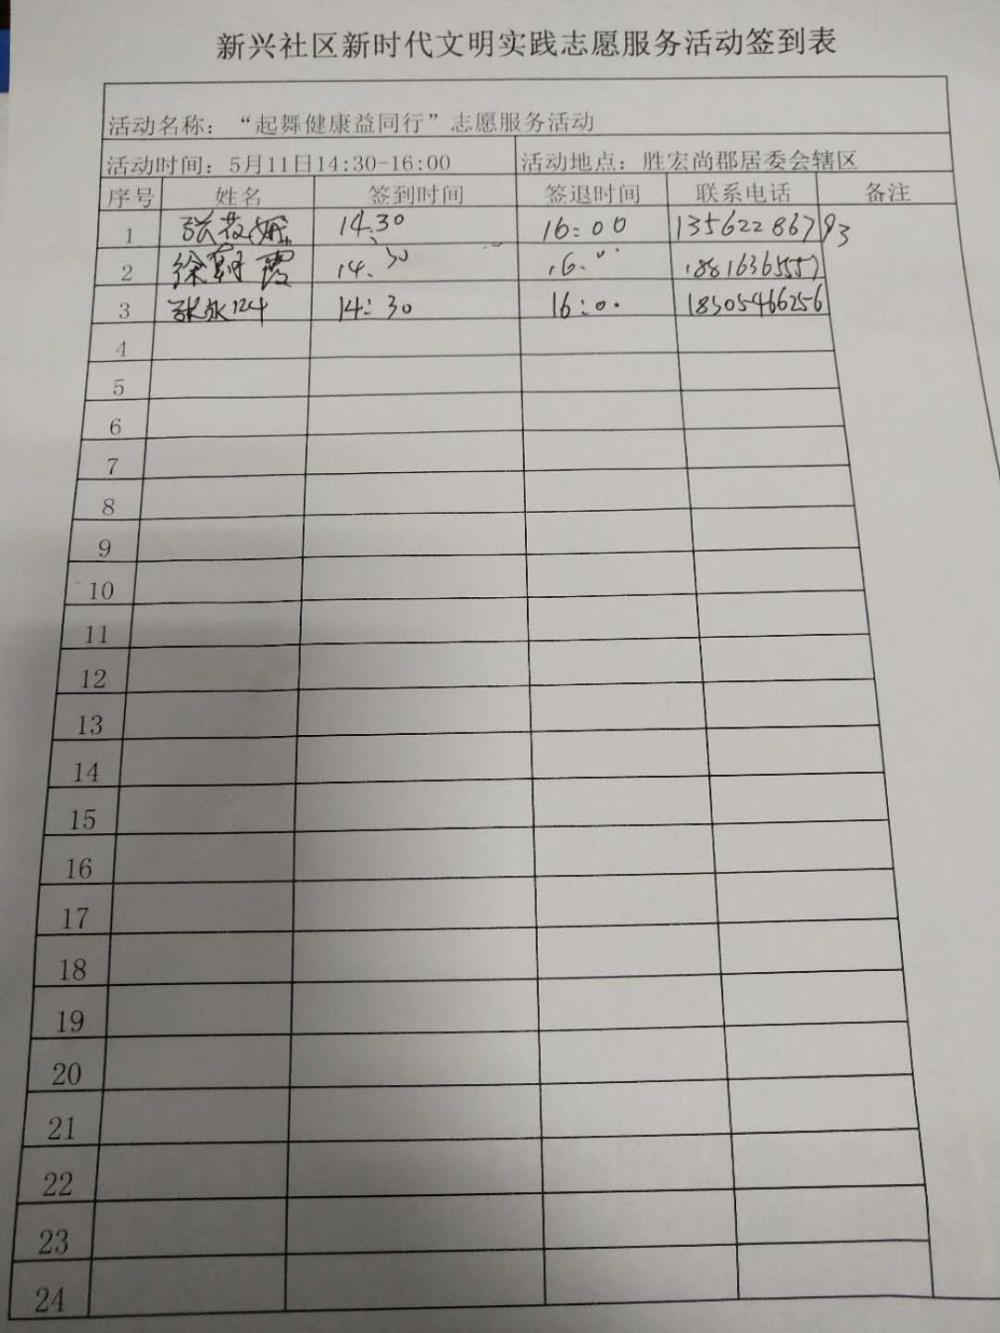 新兴社区新时代文明实践志愿服务活动签到表
活动名称：“起舞健康益同行”志愿服务活动
活动时间：5月11日14:30-16:00 活动地点：胜宏尚郡居委会辖区
序号 姓名 签到时间 签退时间 联系电话 备注
1 14:30 16:00 13562286793
2 徐 霞 14:30 16:00
3 张永 14:30 16:00 18305466256
4
5
6
7
8
9
10
11
12
13
14
15
16
17
18
19
20
21
22
23
24